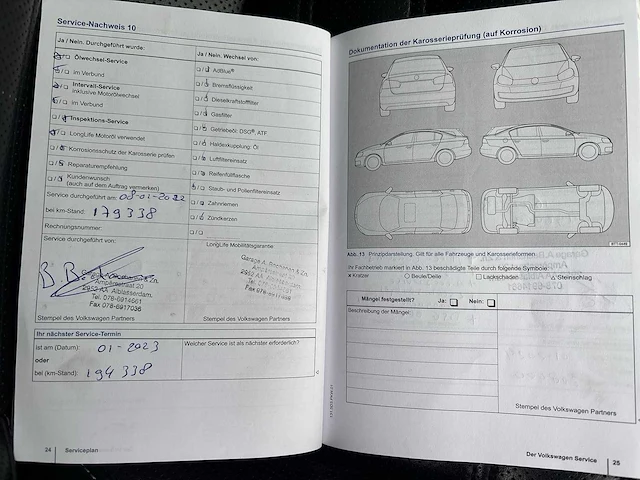 Service-Nachweis 10
Ja / Nein. Durchgeführt wurde:
Ölwechsel-Service
im Verbund
Intervall-Service
inklusive Motorölwechsel
im Verbund
Inspektions-Service
LongLife Motoröl verwendet
Korrosionsschutz der Karosserie prüfen
Reparaturempfehlung
Kundenwunsch
(auch auf dem Auftrag vermerken)
Service durchgeführt am: 08-01-2022
bei km-Stand: 179338
Rechnungsnummer:
Service durchgeführt von:
Ampèrestraat 20
2952 AA Alblasserdam.
Tel. 078-6914661
Fax 078-6917036
Stempel des Volkswagen Partners
Ja / Nein. Wechsel von:
AdBlue®
Bremsflüssigkeit
Dieselkraftstofffilter
Gasfilter
Getriebeöl: DSG®, ATF
Haldexkupplung: Öl
Luftfiltereinsatz
Reifenfüllflasche
Staub- und Pollenfiltereinsatz
Zahnriemen
Zündkerzen
LongLife Mobilitätsgarantie
Stempel des Volkswagen Partners
Ihr nächster Service-Termin
ist am (Datum): 01-2023
oder
bei (km-Stand): 194338
Welcher Service ist als nächster erforderlich?
24 Serviceplan
Dokumentation der Karosserieprüfung (auf Korrosion)
Abb. 13 Prinzipdarstellung: Gilt für alle Fahrzeuge und Karosserieformen.
Ihr Fachbetrieb markiert in Abb. 13 beschädigte Teile durch folgende Symbole:
× Kratzer ○ Beule/Delle □ Lackschaden △ Steinschlag
Mängel festgestellt? Ja: Nein:
Beschreibung der Mängel:
Stempel des Volkswagen Partners
Der Volkswagen Service 25